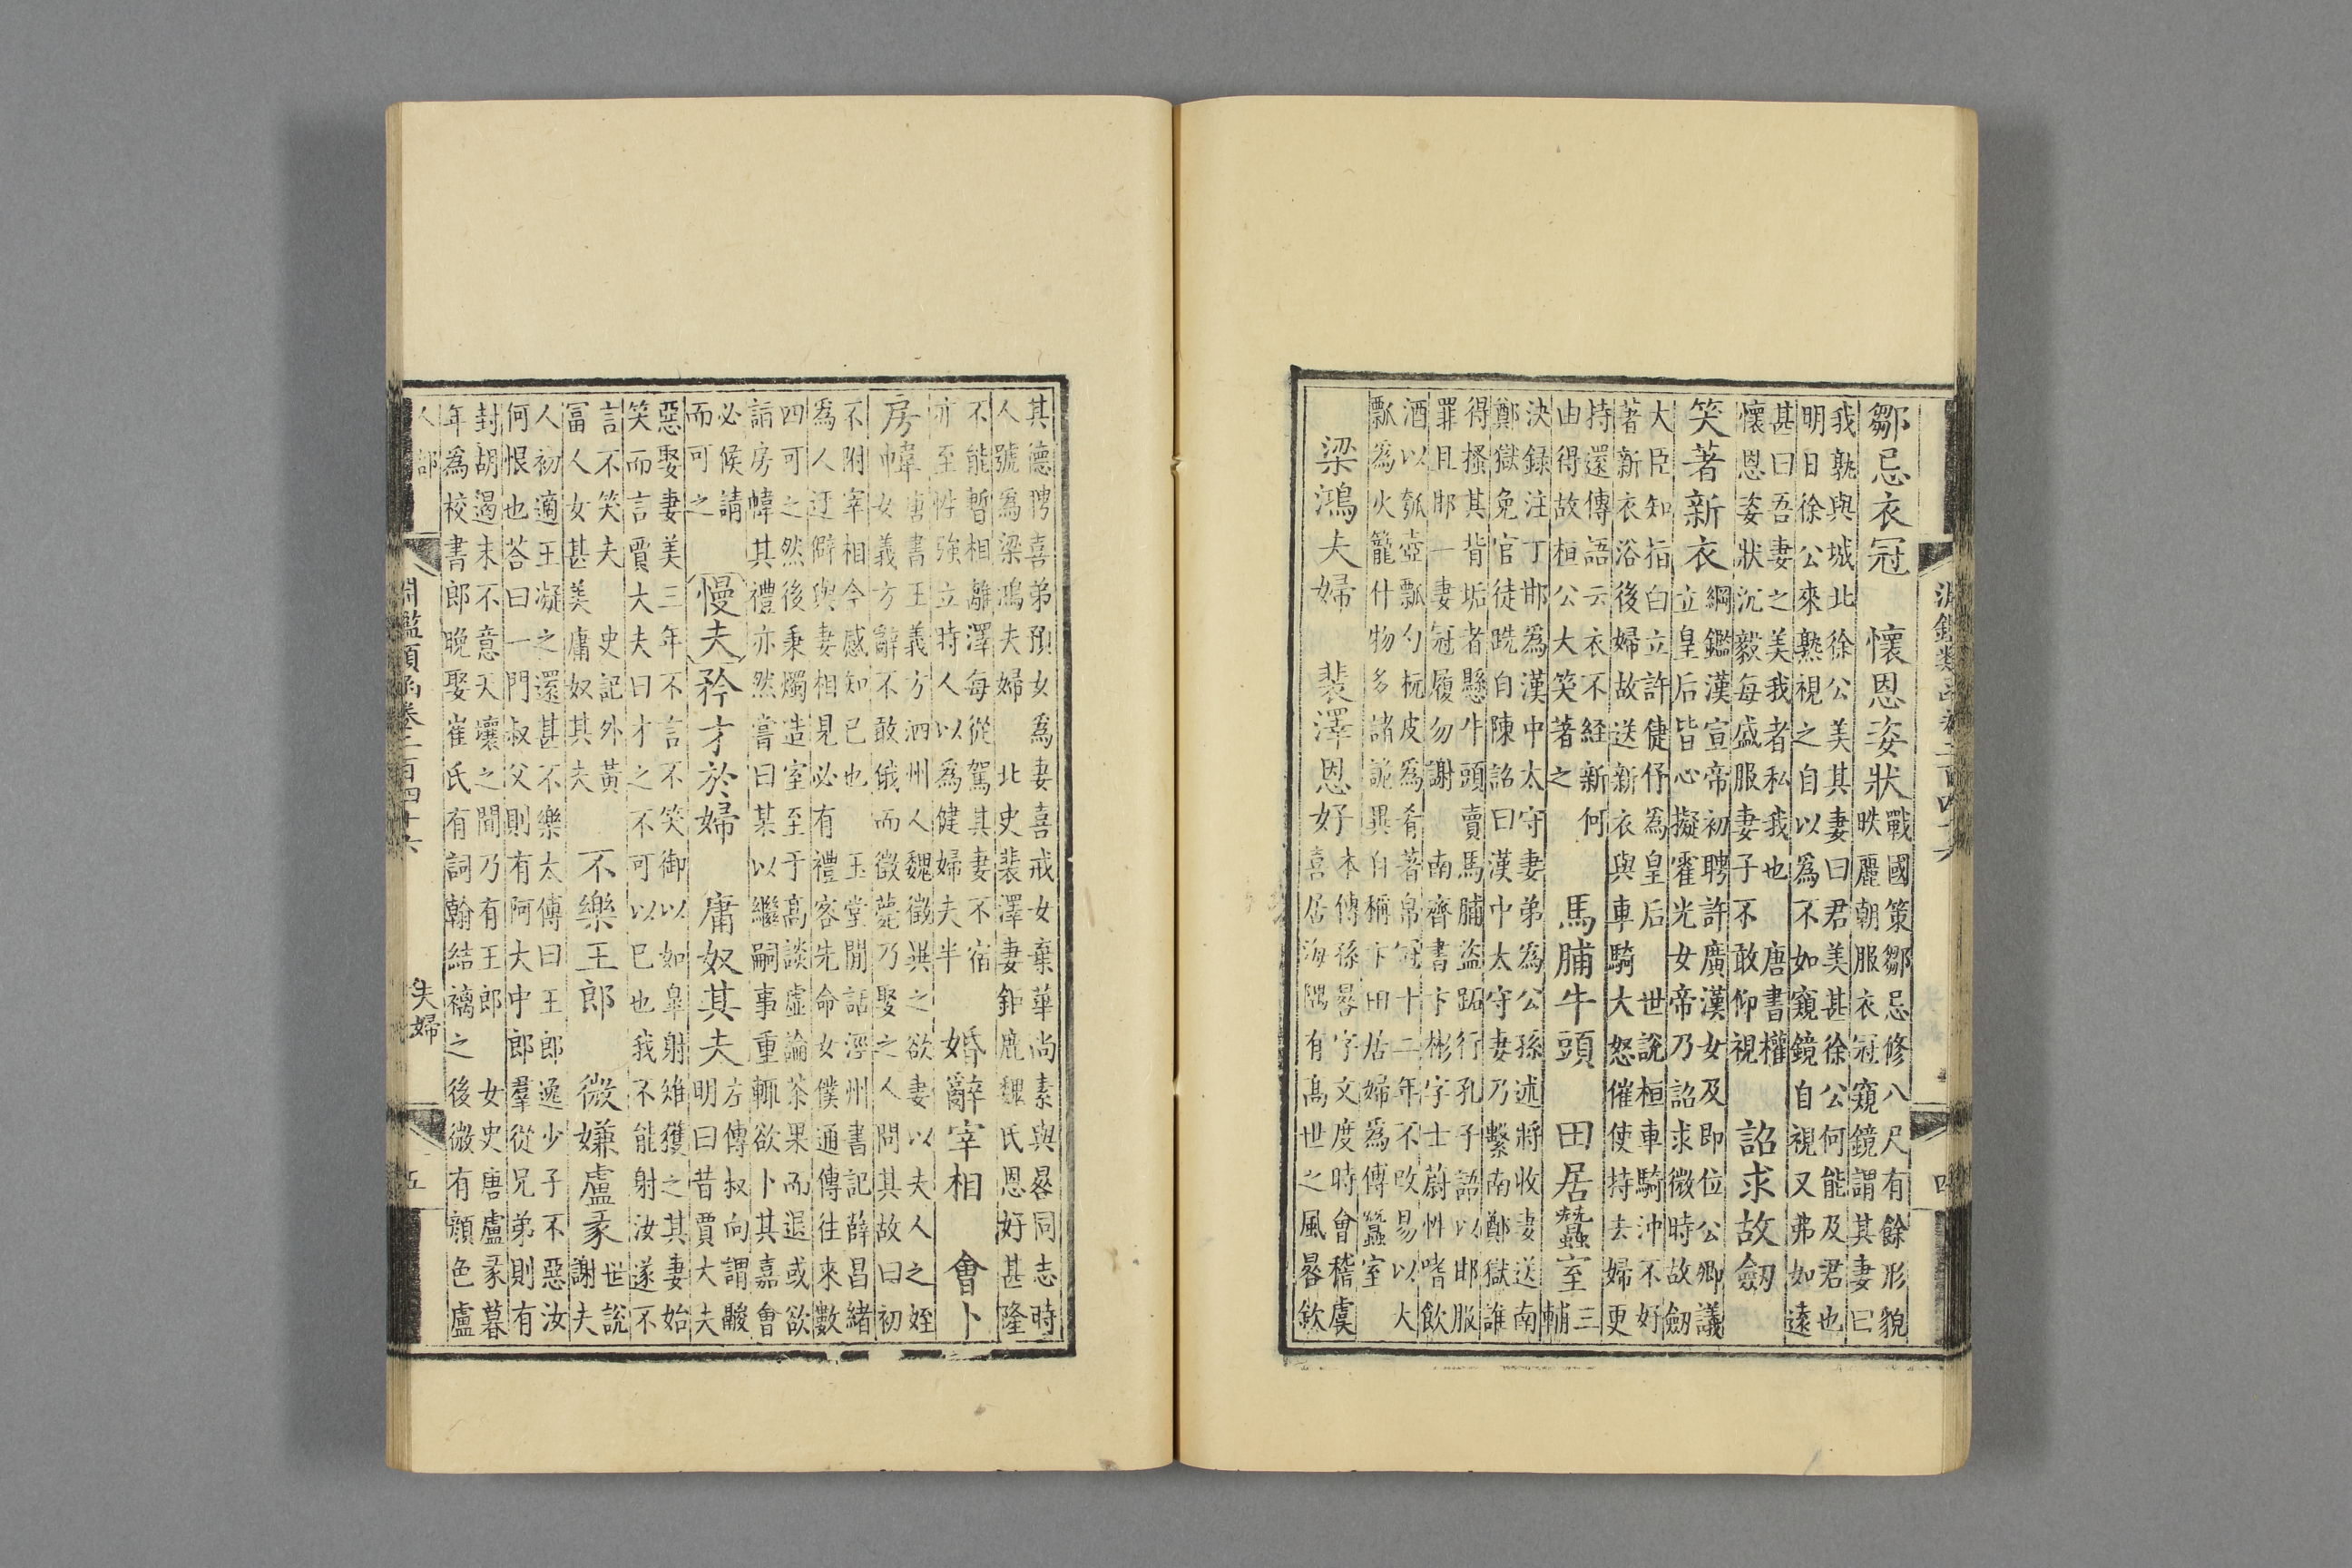 淵鑑類函卷二百四十六 四
鄒忌衣冠 懷恩姿狀 戰國策鄒忌修八尺有餘形貌
昳麗朝服衣冠窺鏡謂其妻曰
我孰與城北徐公美其妻曰君美甚徐公何能及君也
明日徐公來熟視之自以為不如窺鏡自視又弗如遠
甚曰吾妻之美我者私我也 唐書權
懷恩姿狀沉毅每盛服妻子不敢仰視
詔求故劒
笑著新衣 綱鑑漢宣帝初聘許廣漢女及即位公卿議
立皇后皆心擬霍光女帝乃詔求微時故劒
大臣知指白立許倢伃為皇后 世說桓車騎沖不好
著新衣浴後婦故送新衣與車騎大怒催使持去婦更
持還傳語云衣不経新何
由得故桓公大笑著之
馬脯牛頭 田居蠶室 三
輔
決録注丁邯為漢中太守妻弟為公孫述將收妻送南
鄭獄免官徒跣自陳詔曰漢中太守妻乃繫南鄭獄誰
得搔其背垢者懸牛頭賣馬脯盜跖行孔子語以邯服
罪且邯一妻冠履勿謝 南齊書卞彬字士蔚性嗜飲
酒以瓠壺瓢勺杬皮為肴著帛冠十二年不改易以大
瓢為火籠什物多諸詭異自稱卞田居婦為傅蠶室
梁鴻夫婦 裴澤恩好 本傳孫晷字文度時會稽虞
喜居海隅有高世之風晷欽
其德聘喜弟預女為妻喜戒女棄華尚素與晷同志時
人號為梁鴻夫婦 北史裴澤妻鉅鹿魏氏恩好甚隆
不能暫相離澤每從駕其妻不宿
亦至性強立時人以為健婦夫半
婚辭宰相 會卜
房幃 唐書王義方泗州人魏徵異之欲妻以夫人之姪
女義方辭不敢俄而徵薨乃娶之人問其故曰初
不附宰相今感知已也 玉堂閒話涇州書記薛昌緒
為人迂僻與妻相見必有禮容先命女僕通傳往來數
四可之然後秉燭造室至于高談虛論茶果而退或欲
詣房幃其禮亦然嘗曰某以繼嗣事重輒欲卜其嘉會
必候請
而可之
慢夫矜才於婦 庸奴其夫 左傳叔向謂鬷
明曰昔賈大夫
惡娶妻美三年不言不笑御以如臯射雉獲之其妻始
笑而言賈大夫曰才之不可以巳也我不能射汝遂不
言不笑夫 史記外黃
富人女甚美庸奴其夫
不樂王郎 微嫌盧彖 世說
謝夫
人初適王凝之還甚不樂太傅曰王郎逸少子不惡汝
何恨也荅曰一門叔父則有阿大中郎羣從兄弟則有
封胡遏末不意天壤之間乃有王郎 女史唐盧彖暮
年為校書郎晚娶崔氏有詞翰結褵之後微有顔色盧
人部 淵鑑類函卷二百四十六 夫婦 五